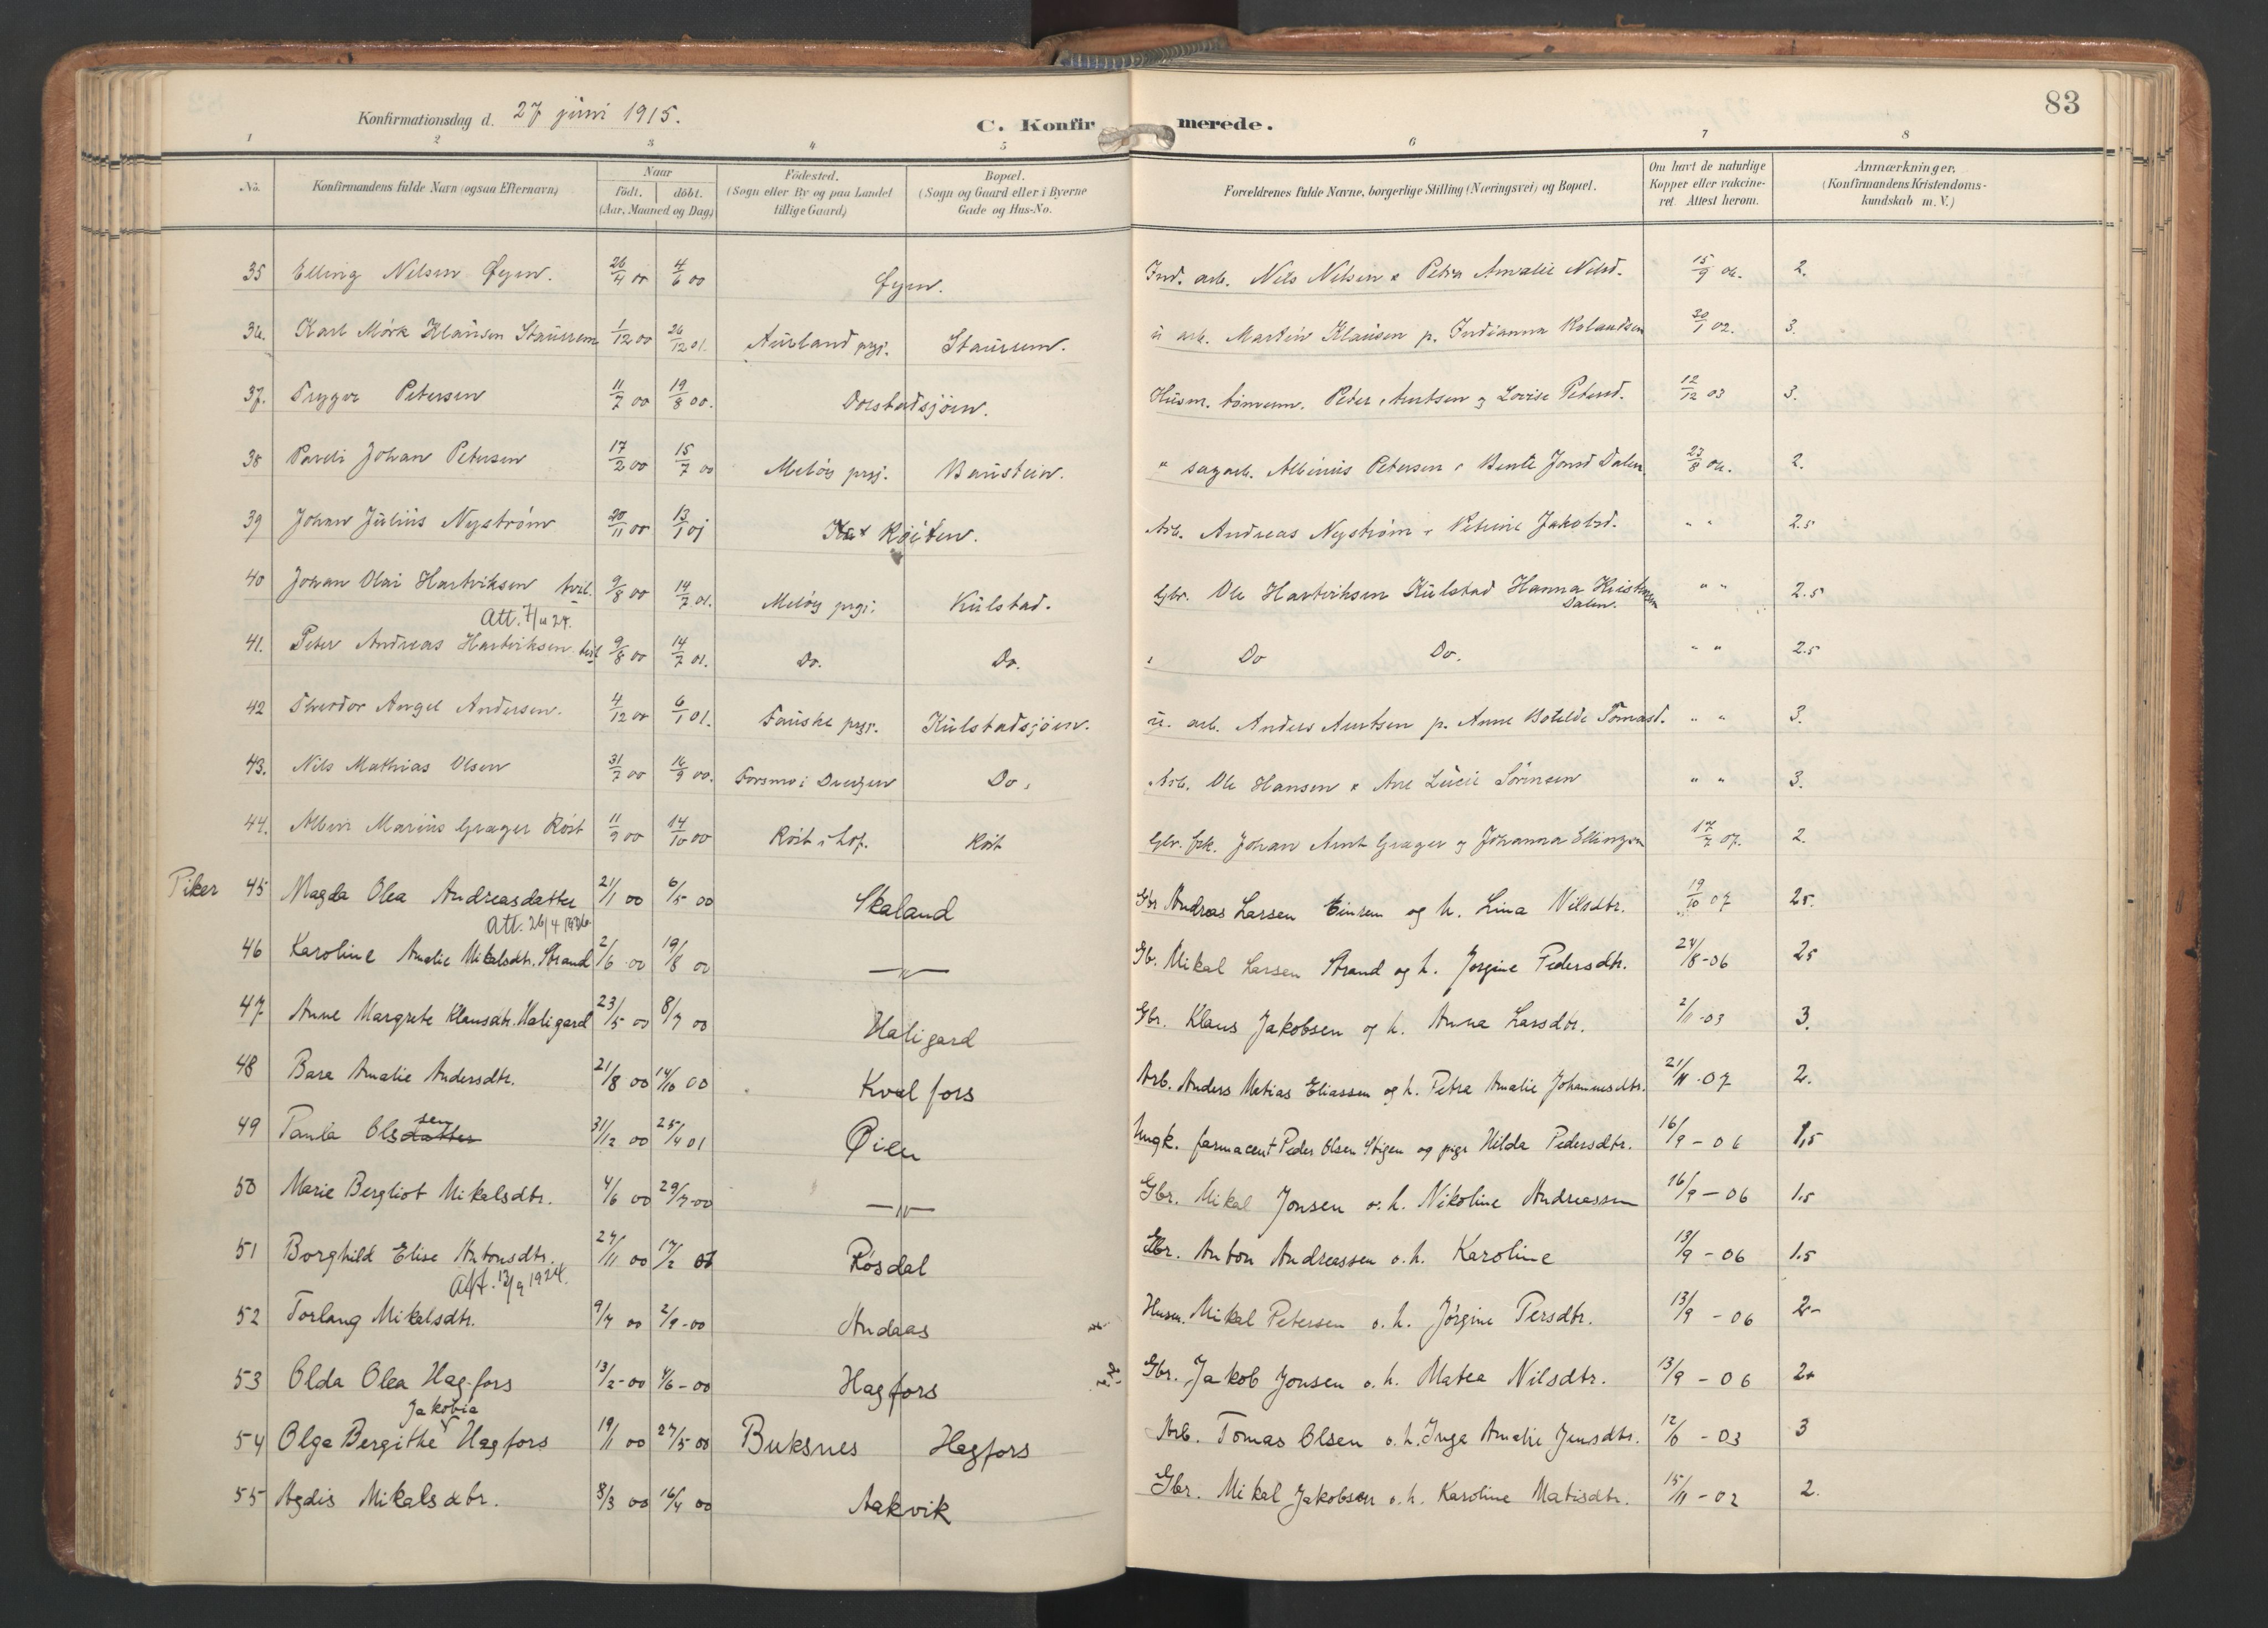 83
Konfirmationsdag d. 27 juni 1915.
C. Konfirmerede.
1 2 3 4 5 6 7 8
No. Konfirmandens fulde Navn (ogsaa Efternavn) Naar født. døbt. (Aar, Maaned og Dag) Fødested. (Sogn eller By og paa Landet tillige Gaard) Bopæl. (Sogn og Gaard eller i Byerne Gade og Hus-No. Forældrenes fulde Navne, borgerlige Stilling (Næringsvei) og Bopæl. Om havt de naturlige Kopper eller vakcineret. Attest herom. Anmærkninger. (Konfirmandens Kristendomskundskab m. V.)
35 Elling Nelsen Øyen. 26/4 00 4/6 00 Øyen. Ind. arb. Nels Nelsen & Petra Amalie Nelsd. 15/9 06. 2.
36. Karl Mørk Klausen 1/12 00 26/12 01. prgj. u arb. Martin Klausen p. Indianna Rolandsen 30/1 02. 3.
37. Trygve Petersen 11/7 00 19/8 00. Dolstadsjøen. Husm. tømmerm. Peter Arntsen og Lovise Petersd. 12/12 03 3.
38 Pareli Johan Petersen 17/2 00 15/7 00 Meløy prgj. Baustein. " sagarb. Albinius Petersen Bente Jonsd Dalen. 23/8 06. 2.
39 Johan Julius Nystrøm 20/11 00 13/1 01 Røiten. Arb. Andreas Nystrøm Petrine Jakobsd. " " 2.5
40 Johan Olai Hartviksen tvil. 9/8 00 14/7 01. Meløy prgj. Kulstad. Gbr. Ole Hartviksen Kulstad Hanna Kristensen Dalen. " " 2.5
Att. 7/11 24.
41. Peter Andreas Hartviksen tvil 9/8 00 14/7 01. Do. Do. Do Do. " " 2.5
42 Angel Andersen. 4/12 00 6/1 01. Fauske prgj. Kulstadsjøen. u. arb. Anders Arntsen p. Anne Botilde Tomasd. " " 3.
43. Nils Mathias Olsen 31/7 00 16/9 00. Forsmo i Do. Arb. Ole Hansen & Ane Lucie Sørensen " " 3.
44. Albin Marius Græger Røst 11/9 00 14/10 00 Røst i Lof. Røst Gbr. fsk. Johan Arnt Græger og Johanna Ellingsen 17/7 07. 2.
Piker 45 Magda Olea Andreasdatter 21/1 00 6/5 00 Skaland Gbr Andreas Larsen Einrem og h. Lina Nilsdtr. 19/10 07 25.
Att. 26/4 1936
46 Karoline Amalie Mikalsdtr. Strand 2/6 00 19/8 00 —"— Gb. Mikal Larsen Strand og h. Jørgine Pedersdtr. 24/8-06 25
47 Anne Margrete Klausdtr. Haligard 23/5 00 8/7 00 Haligard Gbr. Klaus Jakobsen og h. Anna Larsdtr. 2/11-03 3.
48 Bara Amalie Andersdtr. 21/8 00 14/10 00 Kvalfors Arb. Anders Matias Eliassen og h. Petra Amalie Johannesdtr. 21/11-07 2.
49 Paula Olsdatter sen 31/12 00 25/4 01 Øien Ungk. farmaceut Peder Olsen Stigen og pige Hilda Pedersdtr. 16/9-06 1,5
50 Marie Bergliot Mikalsdtr. 4/6 00 29/7-00 —"— Gbr. Mikal Jonsen o. h. Nikoline Andreassen 16/9-06 1.5
51 Borghild Elise Antonsdtr. 24/11 00 17/2 01 Røsdal Gbr. Anton Andreassen o. h. Karoline 13/9-06 1.5
Att. 13/9 1924.
52 Torlaug Mikalsdtr. 9/7 00 2/9-00 Andaas Husm. Mikal Petersen o. h. Jørgine Persdtr. 13/9-06 2-
53 Olda Olea Hagfors 13/2-00 4/6-00 Hagfors Gbr. Jakob Jonsen o. h. Matea Nilsdtr. 13/9-06 2+
Jakobia
54 Olga Bergithe Hagfors 19/1 00 27/5 00 Buksnes Hagfors Arb. Tomas Olsen o. h. Inga Amalie Jensdtr. 12/6-03 3
55 Agdis Mikalsdtr. 8/3 00 16/4 00 Aakvik Gbr. Mikal Jakobsen o. h. Karoline Matisdtr. 15/11-02 2.